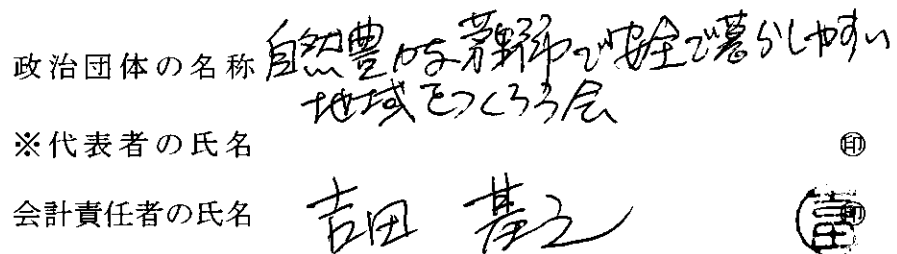 政治団体の名称 自然豊かな茅野市で安全で暮らしやすい
地域をつくろう会
※代表者の氏名 ㊞
会計責任者の氏名 吉田 基之 ㊞